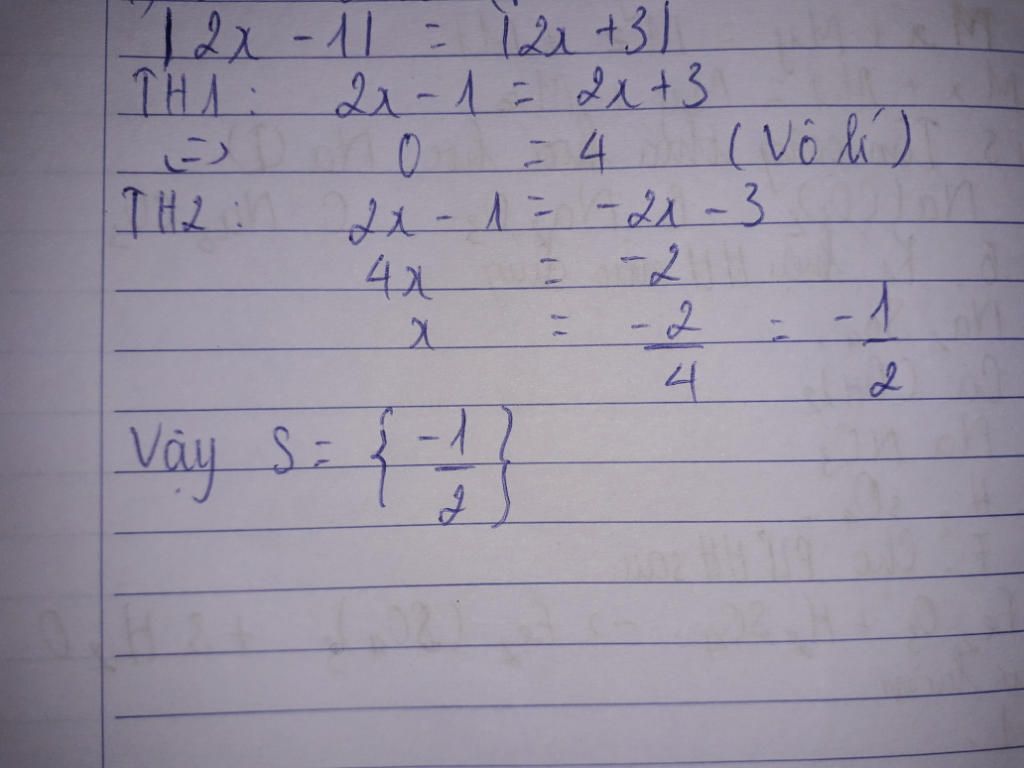 |2x - 1| = |2x + 3|
TH1: 2x - 1 = 2x + 3
(=) 0 = 4 (Vô lí)
TH2: 2x - 1 = -2x - 3
4x = -2
x = -2/4 = -1/2
Vậy S = {-1/2}